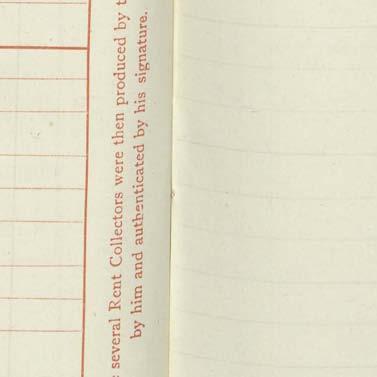 several Rent Collectors were then produced by
by him and authenticated by his signature.